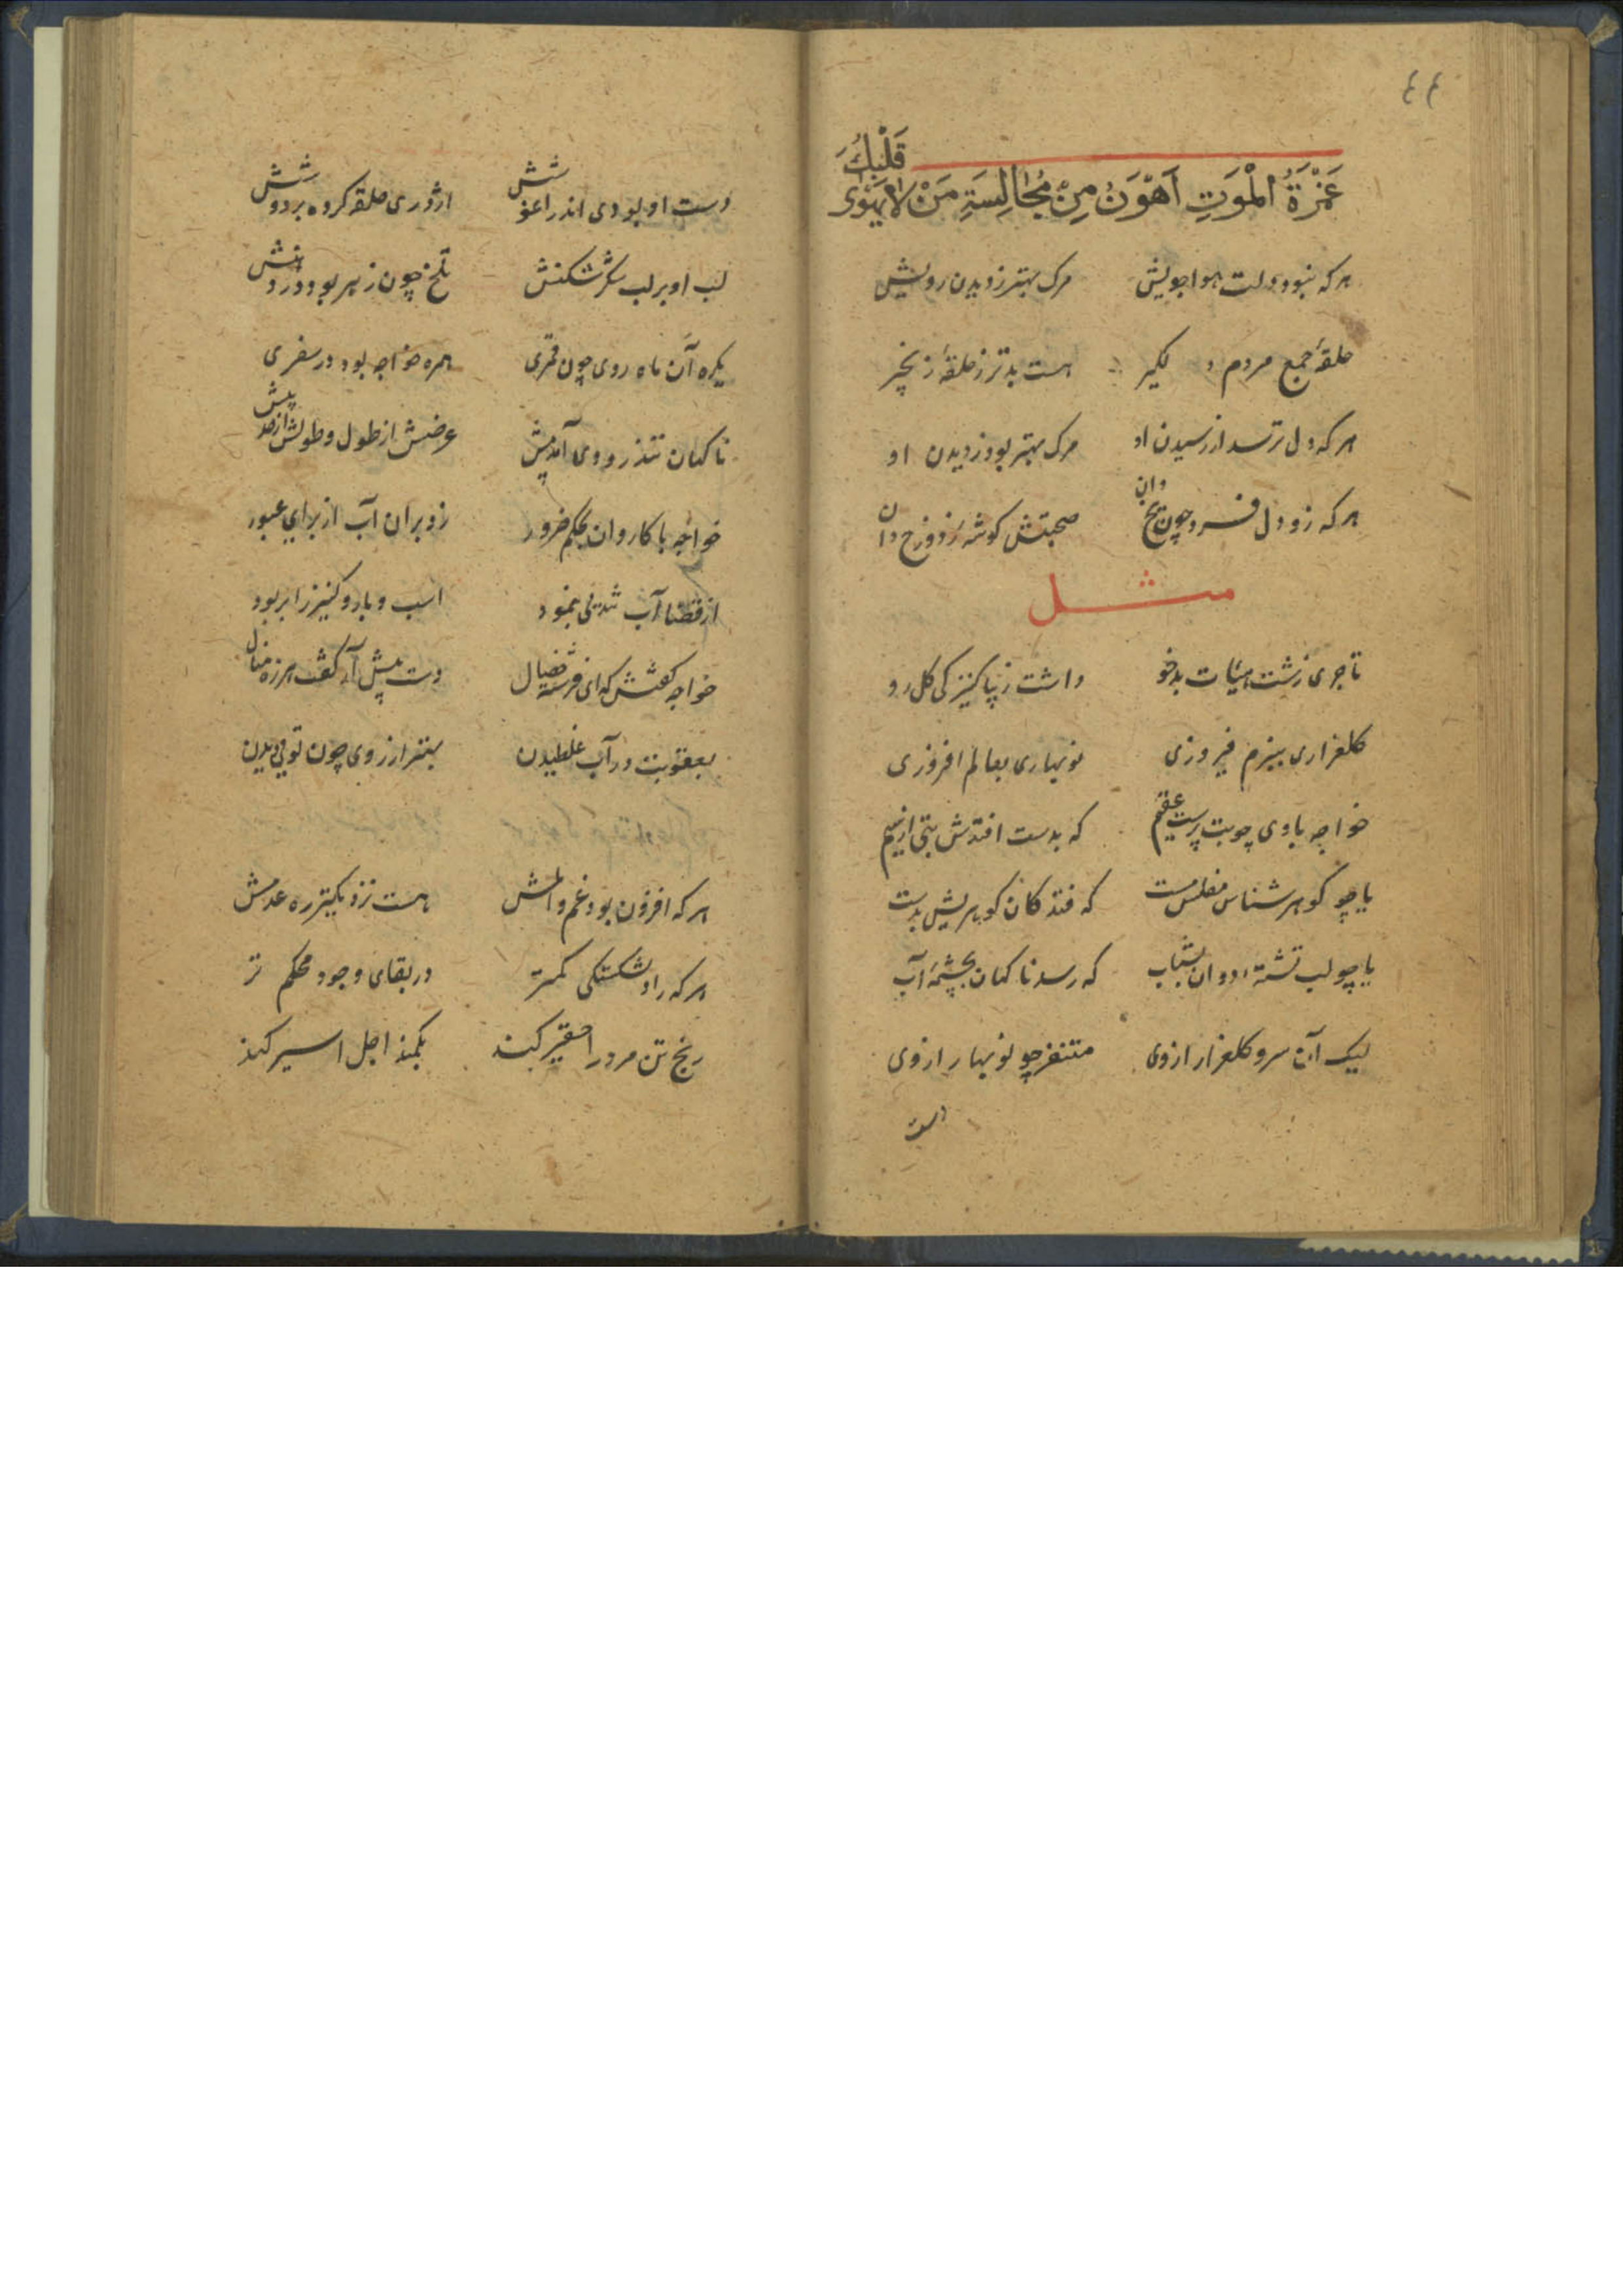 ٤٤
غَمْرَةُ الْمَوتِ اَهْوَنُ مِنْ مُجٰالِسَةِ مَنْ لا يَهْوٰى قَلْبُكَ
هرکه نبود دلت هواجویش مرک بهتر ز دیدن رویش
حلقهٔ جمع مردم دلکیر هست بدتر ز حلقهٔ زنجیر
هرکه دل ترسد از رسیدن او مرک بهتر بود ز دیدن او
هرکه زو دل فسرد چون یخ دان صحبتش کوشهٔ ز دوزخ دان
مثل
تاجری زشت هیئات بدخو داشت زیبا کنیزکی کل رو
کلعذاری ببزم فیروزی نوبهاری بعالم افروزی
خواجه باوی چو بت پرست عقیم که بدست افتدش بتی از سیم
یا چو کوهر شناس مفلس مست که فتد کان کوهریش بدست
یا چو لب تشتهٔ دوان بشتاب که رسد ناکهان بچشمهٔ آب
لیک آن سرو کلعذار ازوی متنفر چو نوبهار ازدی
دست
دست او بودی اندر اغوشش اژدری حلقه کرده بر دوشش
لب او بر لب شکر شکنش تلخ چون زهر بود در دهنش
یکره آن ماه روی چون قمری همره خواجه بود در سفری
ناکهان تند رودی آمد پیش عرضش از طول و طولش از حد پیش
خواجه با کاروان بحکم ضرور زد بران آب از برای عبور
از قضا آب تندیی بنمود اسب و بار و کنیز را بربود
خواجه کفتش که ای فرشته خصال دست پیش آر کفت هرزه منال
بعقوبت در آب غلطیدن بهتر از روی چون تویی دیدن
هرکه افزون بود غم و المش هست نزدیکتر ره عدمش
هرکه را دلشکستکی کمتر در بقای وجود محکم تر
رنج تن مرد را حقیر کند بکمند اجل اسیر کند